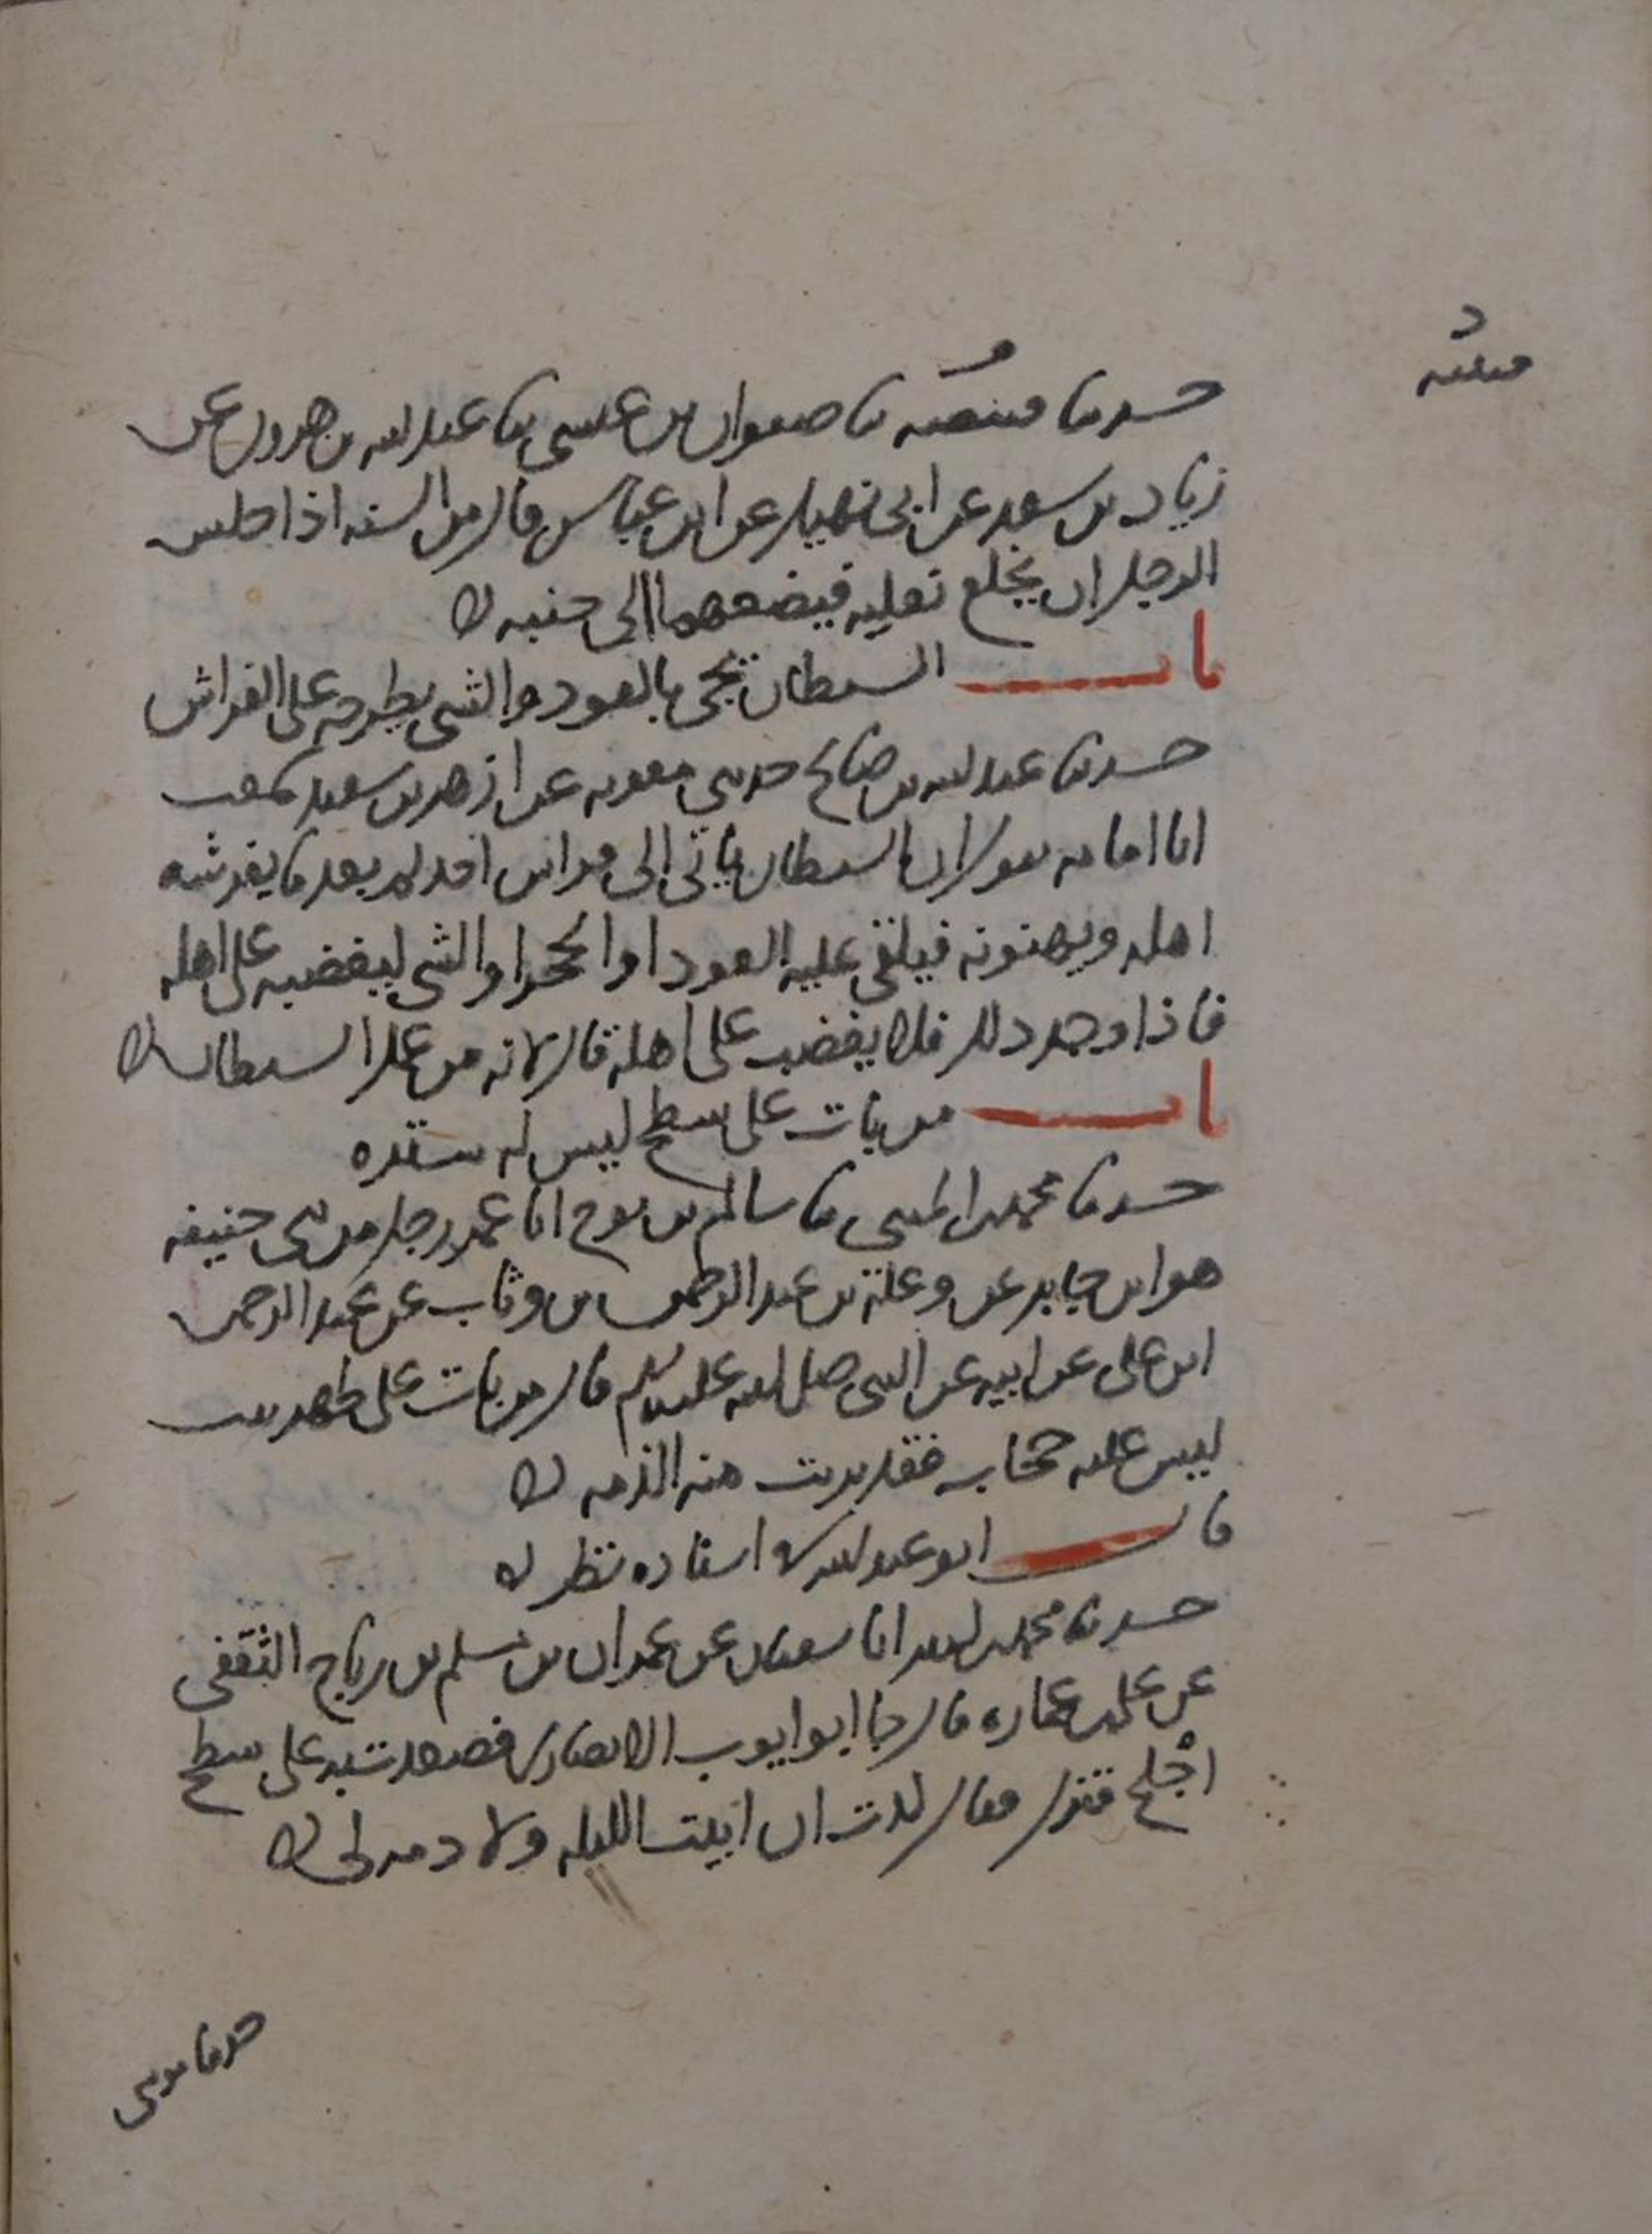 قتيبة
حدثنا قتيبة نا صفوان بن عيسى نا عبد الله بن هرون عن
زياد بن سعد عن ابي نهيك عن ابن عباس قال من السنة اذا جلس
الرجل ان يخلع نعليه فيضعهما الى جنبه
باب الشيطان يجي بالعود والشي يطرحه على الفراش
حدثنا عبد الله بن صالح حدثني معوية عن ازهر بن سعيد سمعت
ابا امامة يقول ان الشيطان ياتي الى فراش احدكم بعد ما يفرشه
اهله ويهيئونه فيلقي عليه العود او الحجر او الشي ليغضبه على اهله
فاذا وجد ذلك فلا يغضب على اهله قال لانه من عمل الشيطان
باب من بات على سطح ليس له سترة
حدثنا محمد بن المثنى نا سالم بن نوح انا عمر رجل من بني حنيفة
هو ابن جابر عن وعلة بن عبد الرحمن بن وثاب عن عبد الرحمن
ابن علي عن ابيه عن النبي صلى الله عليه وسلم قال من بات على ظهر بيت
ليس عليه حجاب فقد برئت منه الذمة
قال ابو عبد الله في اسناده نظر
حدثنا محمد بن كثير انا سفيان عن عمران بن مسلم بن رياح الثقفي
عن علي بن عمارة قال جا ابو ايوب الانصاري فصعدت به على سطح
اجلح فنزل وقال كدت ان ابيت الليلة ولا ذمة لي
حدثنا موسى